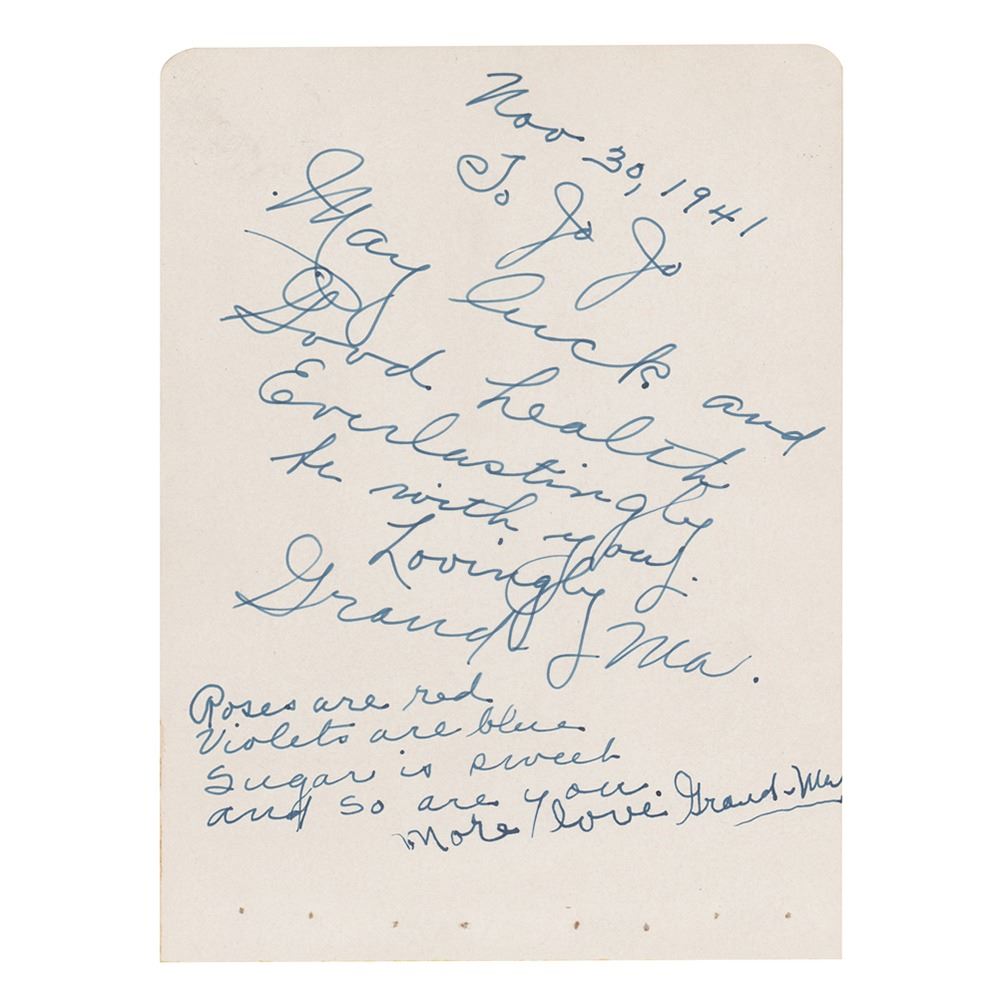 Nov 30, 1941
To Jo Jo
May luck and
Good health
Everlastingly
be with you.
Lovingly
Grand Ma.
Roses are red
Violets are blue
Sugar is sweet
and so are you.
More love. Grand-Ma